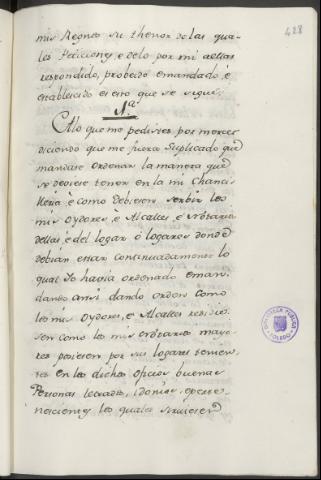 428
mis Regnos su thenor de las qua-
les Peticiones, e delo por mi a ellas
respondido, probeido emandado, è
establecido es esto que se sigue.
1ª
A lo que me pedistes por merced
diciendo que me fuera suplicado que
mandase ordenar la manera que
se deviese tener en la mi Chanci-
lleria è como debiesen serbir los
mis Oydores, è Alcaldes, è Notarios
dellas è del logar ò logares donde
debian estar continuadamente lo
qual Yo havia ordenado eman-
dando ansi dando orden como
los mis Oydores, è Alcaldes
sen como los mis Notarios mayo-
res posiesen por sus logares tenien-
tes en los dichos oficios buenas
Personas letrados, idonios, eperte-
nescientes los quales sirviesen
BIBLIOTECA PUBLICA
TOLEDO